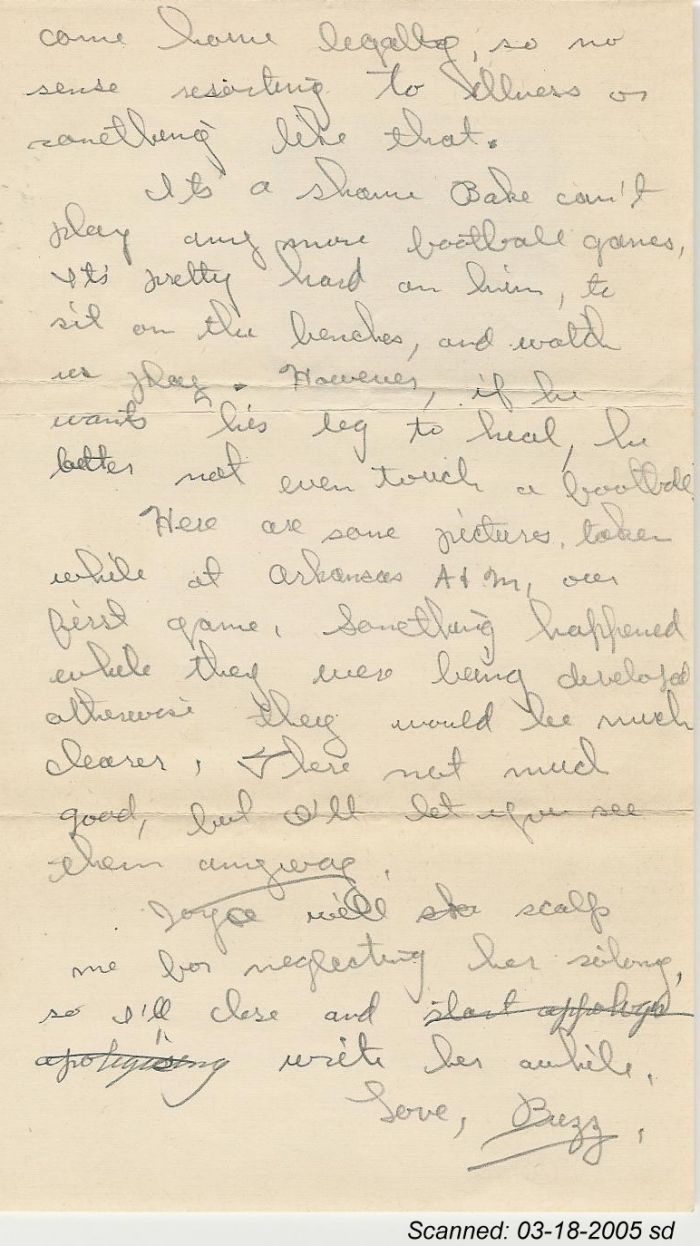 come home legally, so no
sense resorting to illness or
something like that.
It's a shame Bake can't
play any more football games,
It's pretty hard on him, to
sit on the benches, and watch
us play. However, if he
wants his leg to heal, he
better not even touch a football
Here are some pictures, taken
while at Arkansas A & M, our
first game. Something happened
while they were being developed
otherwise they would be much
clearer, There not much
good, but I'll let you see
them anyway.
Joyce will scalp
me for neglecting her so long,
so I'll close and start appologi
apologising write her awhile.
Love, Buzz.
Scanned: 03-18-2005 sd